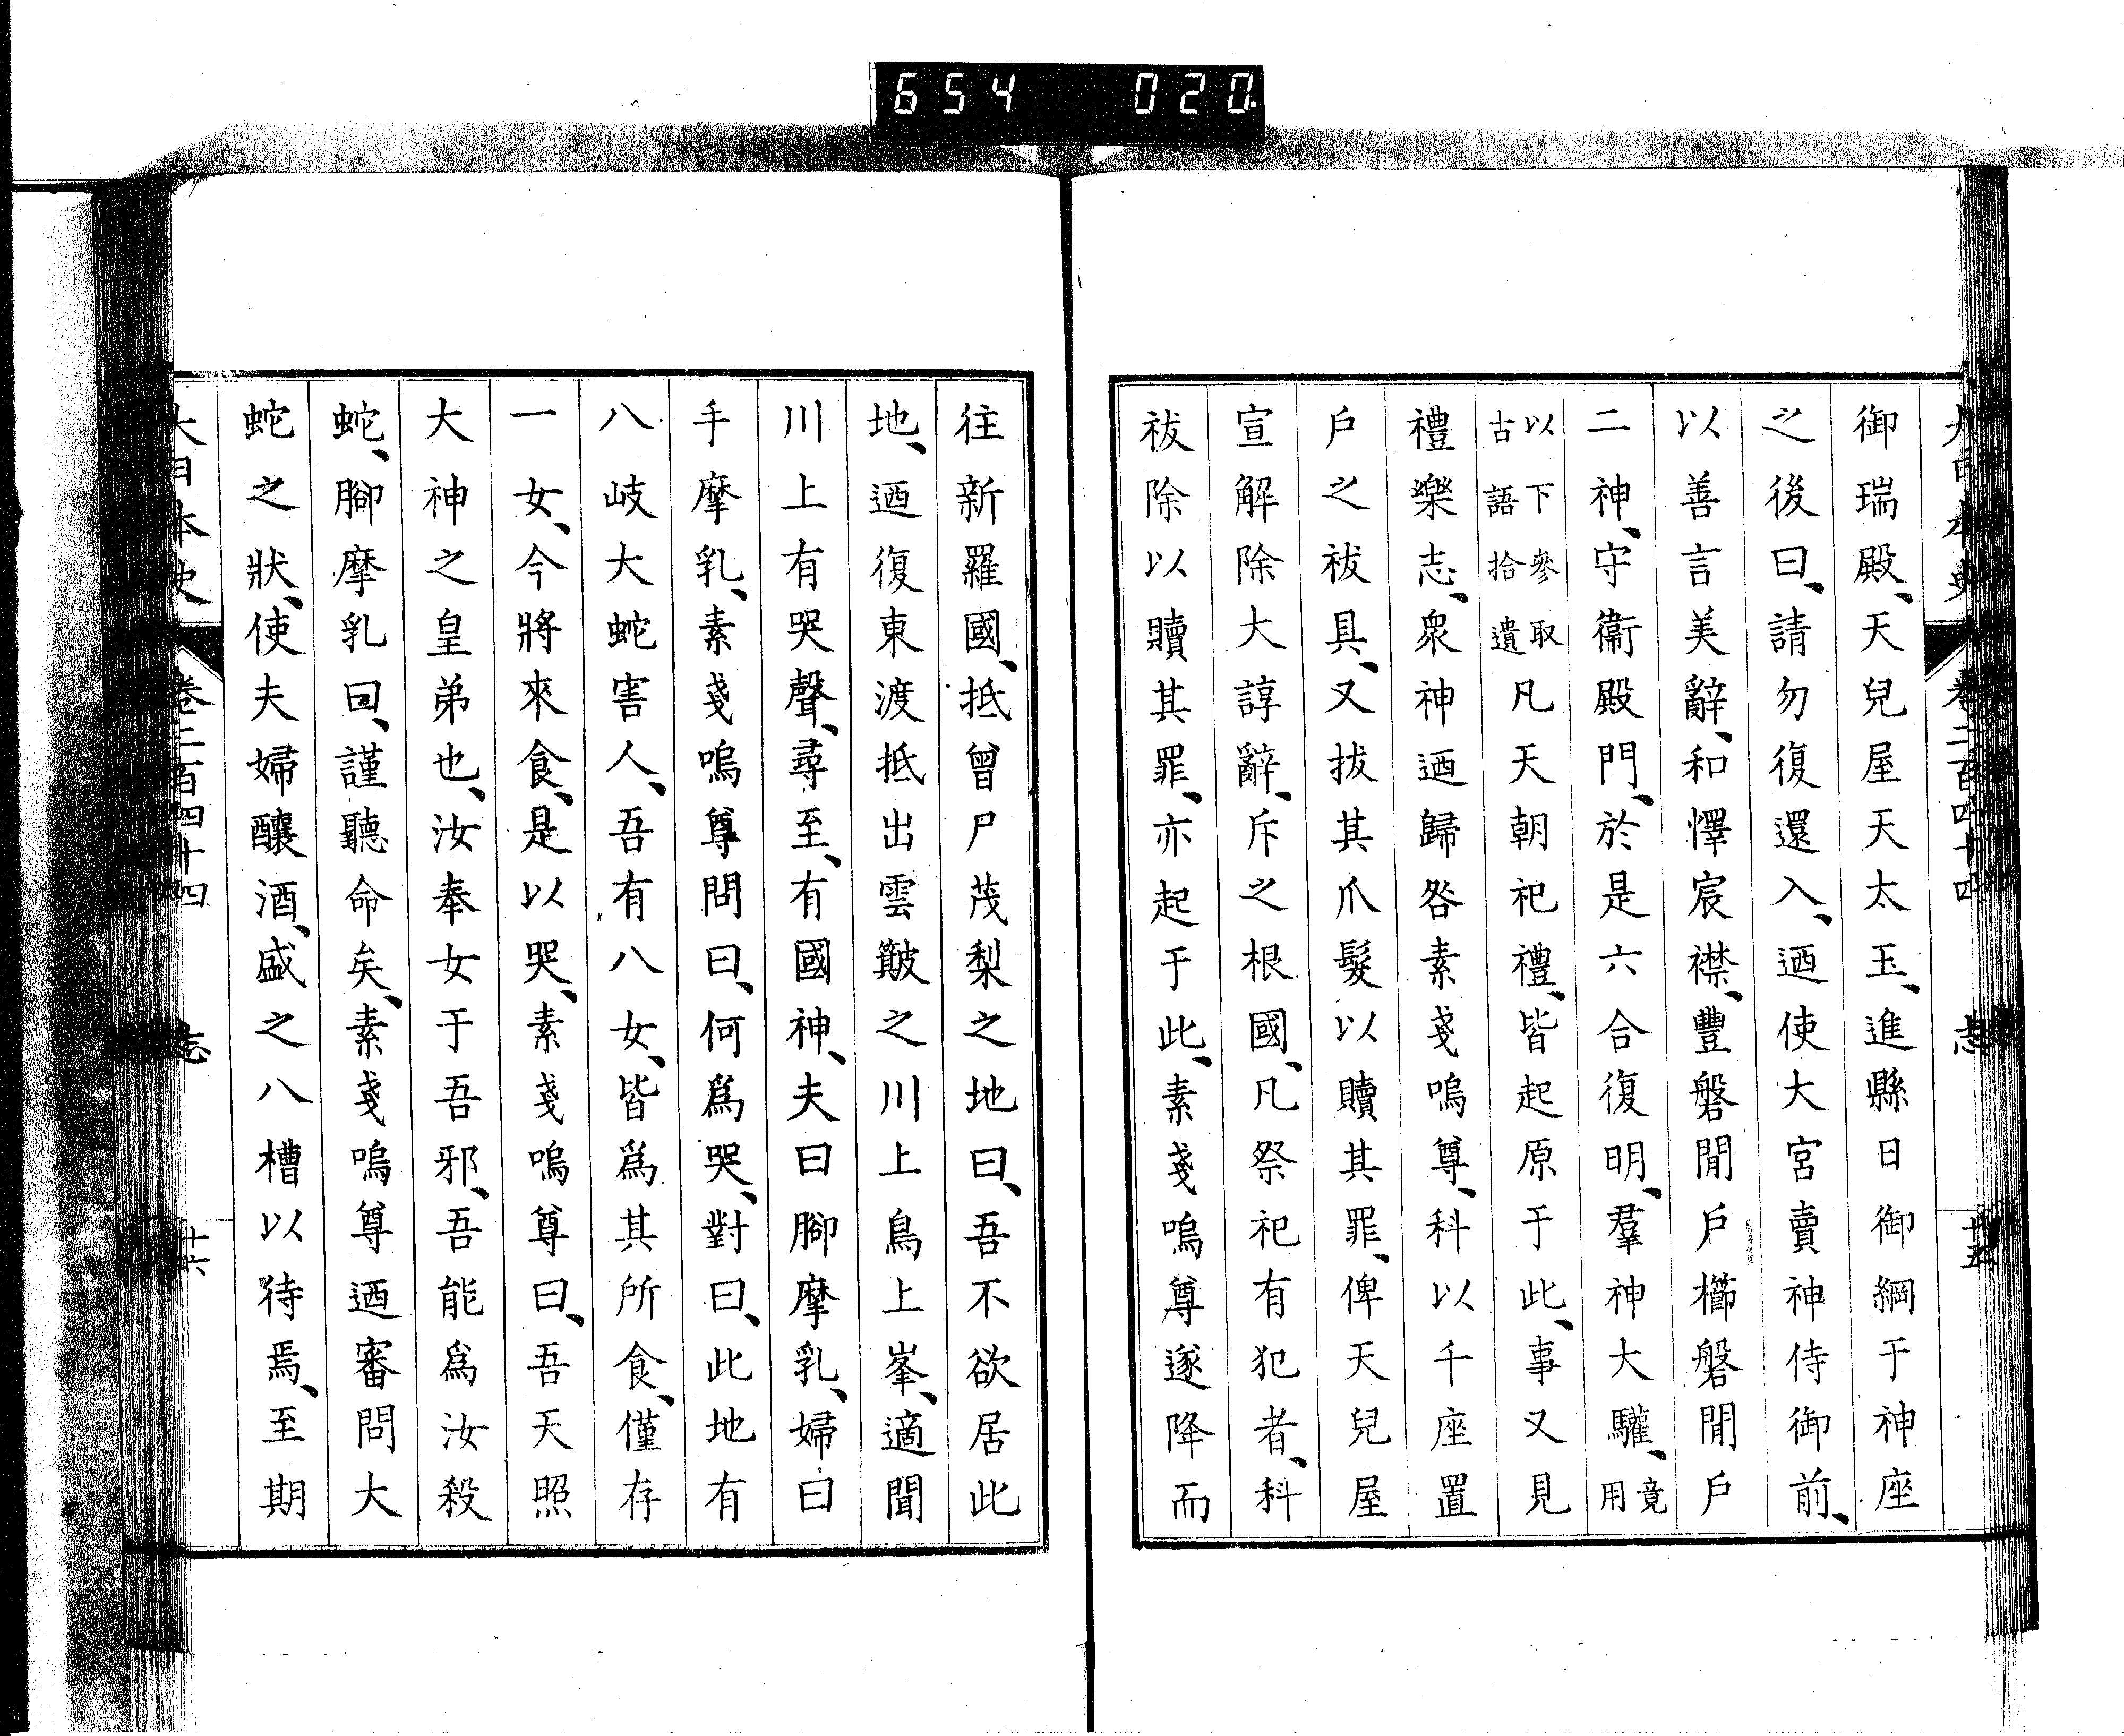 654 020
大日本史 卷二百四十四 志 十五
御瑞殿、天兒屋天太玉、進縣日御綱于神座
之後曰、請勿復還入、迺使大宮賣神侍御前、
以善言美辭、和懌宸襟、豐磐閒戶櫛磐閒戶
二神、守衞殿門、於是六合復明、羣神大驩、竟用
以下參取古語拾遺凡天朝祀禮、皆起原于此、事又見
禮樂志、衆神迺歸咎素戔嗚尊、科以千座置
戶之祓具、又拔其爪髮以贖其罪、俾天兒屋
宣解除大諄辭、斥之根國、凡祭祀有犯者、科
祓除以贖其罪、亦起于此、素戔嗚尊遂降而
往新羅國、抵曾尸茂梨之地曰、吾不欲居此
地、迺復東渡抵出雲簸之川上鳥上峯、適聞
川上有哭聲、尋至、有國神、夫曰腳摩乳、婦曰
手摩乳、素戔嗚尊問曰、何爲哭、對曰、此地有
八岐大蛇害人、吾有八女、皆爲其所食、僅存
一女、今將來食、是以哭、素戔嗚尊曰、吾天照
大神之皇弟也、汝奉女于吾邪、吾能爲汝殺
蛇、腳摩乳曰、謹聽命矣、素戔嗚尊迺審問大
蛇之狀、使夫婦釀酒、盛之八槽以待焉、至期
大日本史 卷二百四十四 志 十六